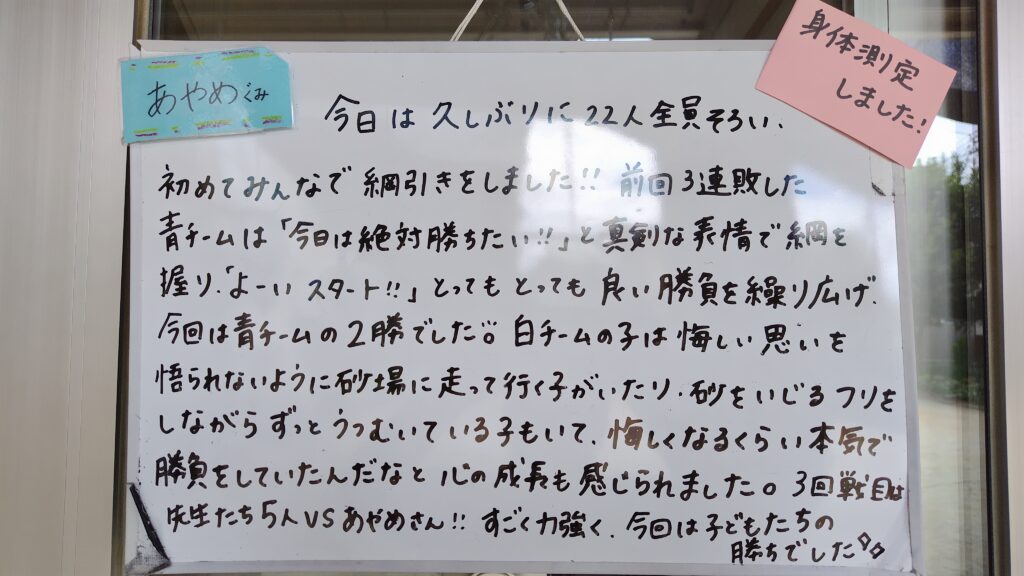 あやめぐみ
身体測定
しました!
今日は久しぶりに22人全員そろい、
初めてみんなで綱引きをしました!! 前回3連敗した
青チームは「今日は絶対勝ちたい!!」と真剣な表情で綱を
握り、「よーい スタート!!」とってもとっても良い勝負を繰り広げ、
今回は青チームの2勝でした。白チームの子は悔しい思いを
悟られないように砂場に走って行く子がいたり、砂をいじるフリを
しながらずっとうつむいている子もいて、悔しくなるくらい本気で
勝負をしていたんだなと心の成長も感じられました。3回戦目は
先生たち5人VSあやめさん!! すごく力強く、今回は子どもたちの
勝ちでした